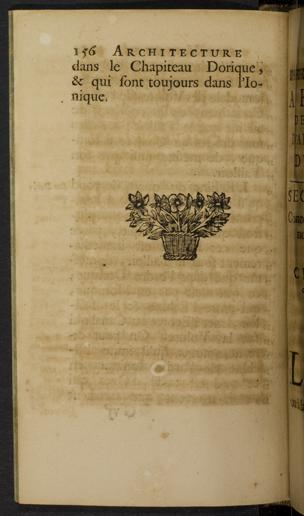 156 ARCHITECTURE
dans le Chapiteau Dorique,
& qui sont toujours dans l'Io-
nique.